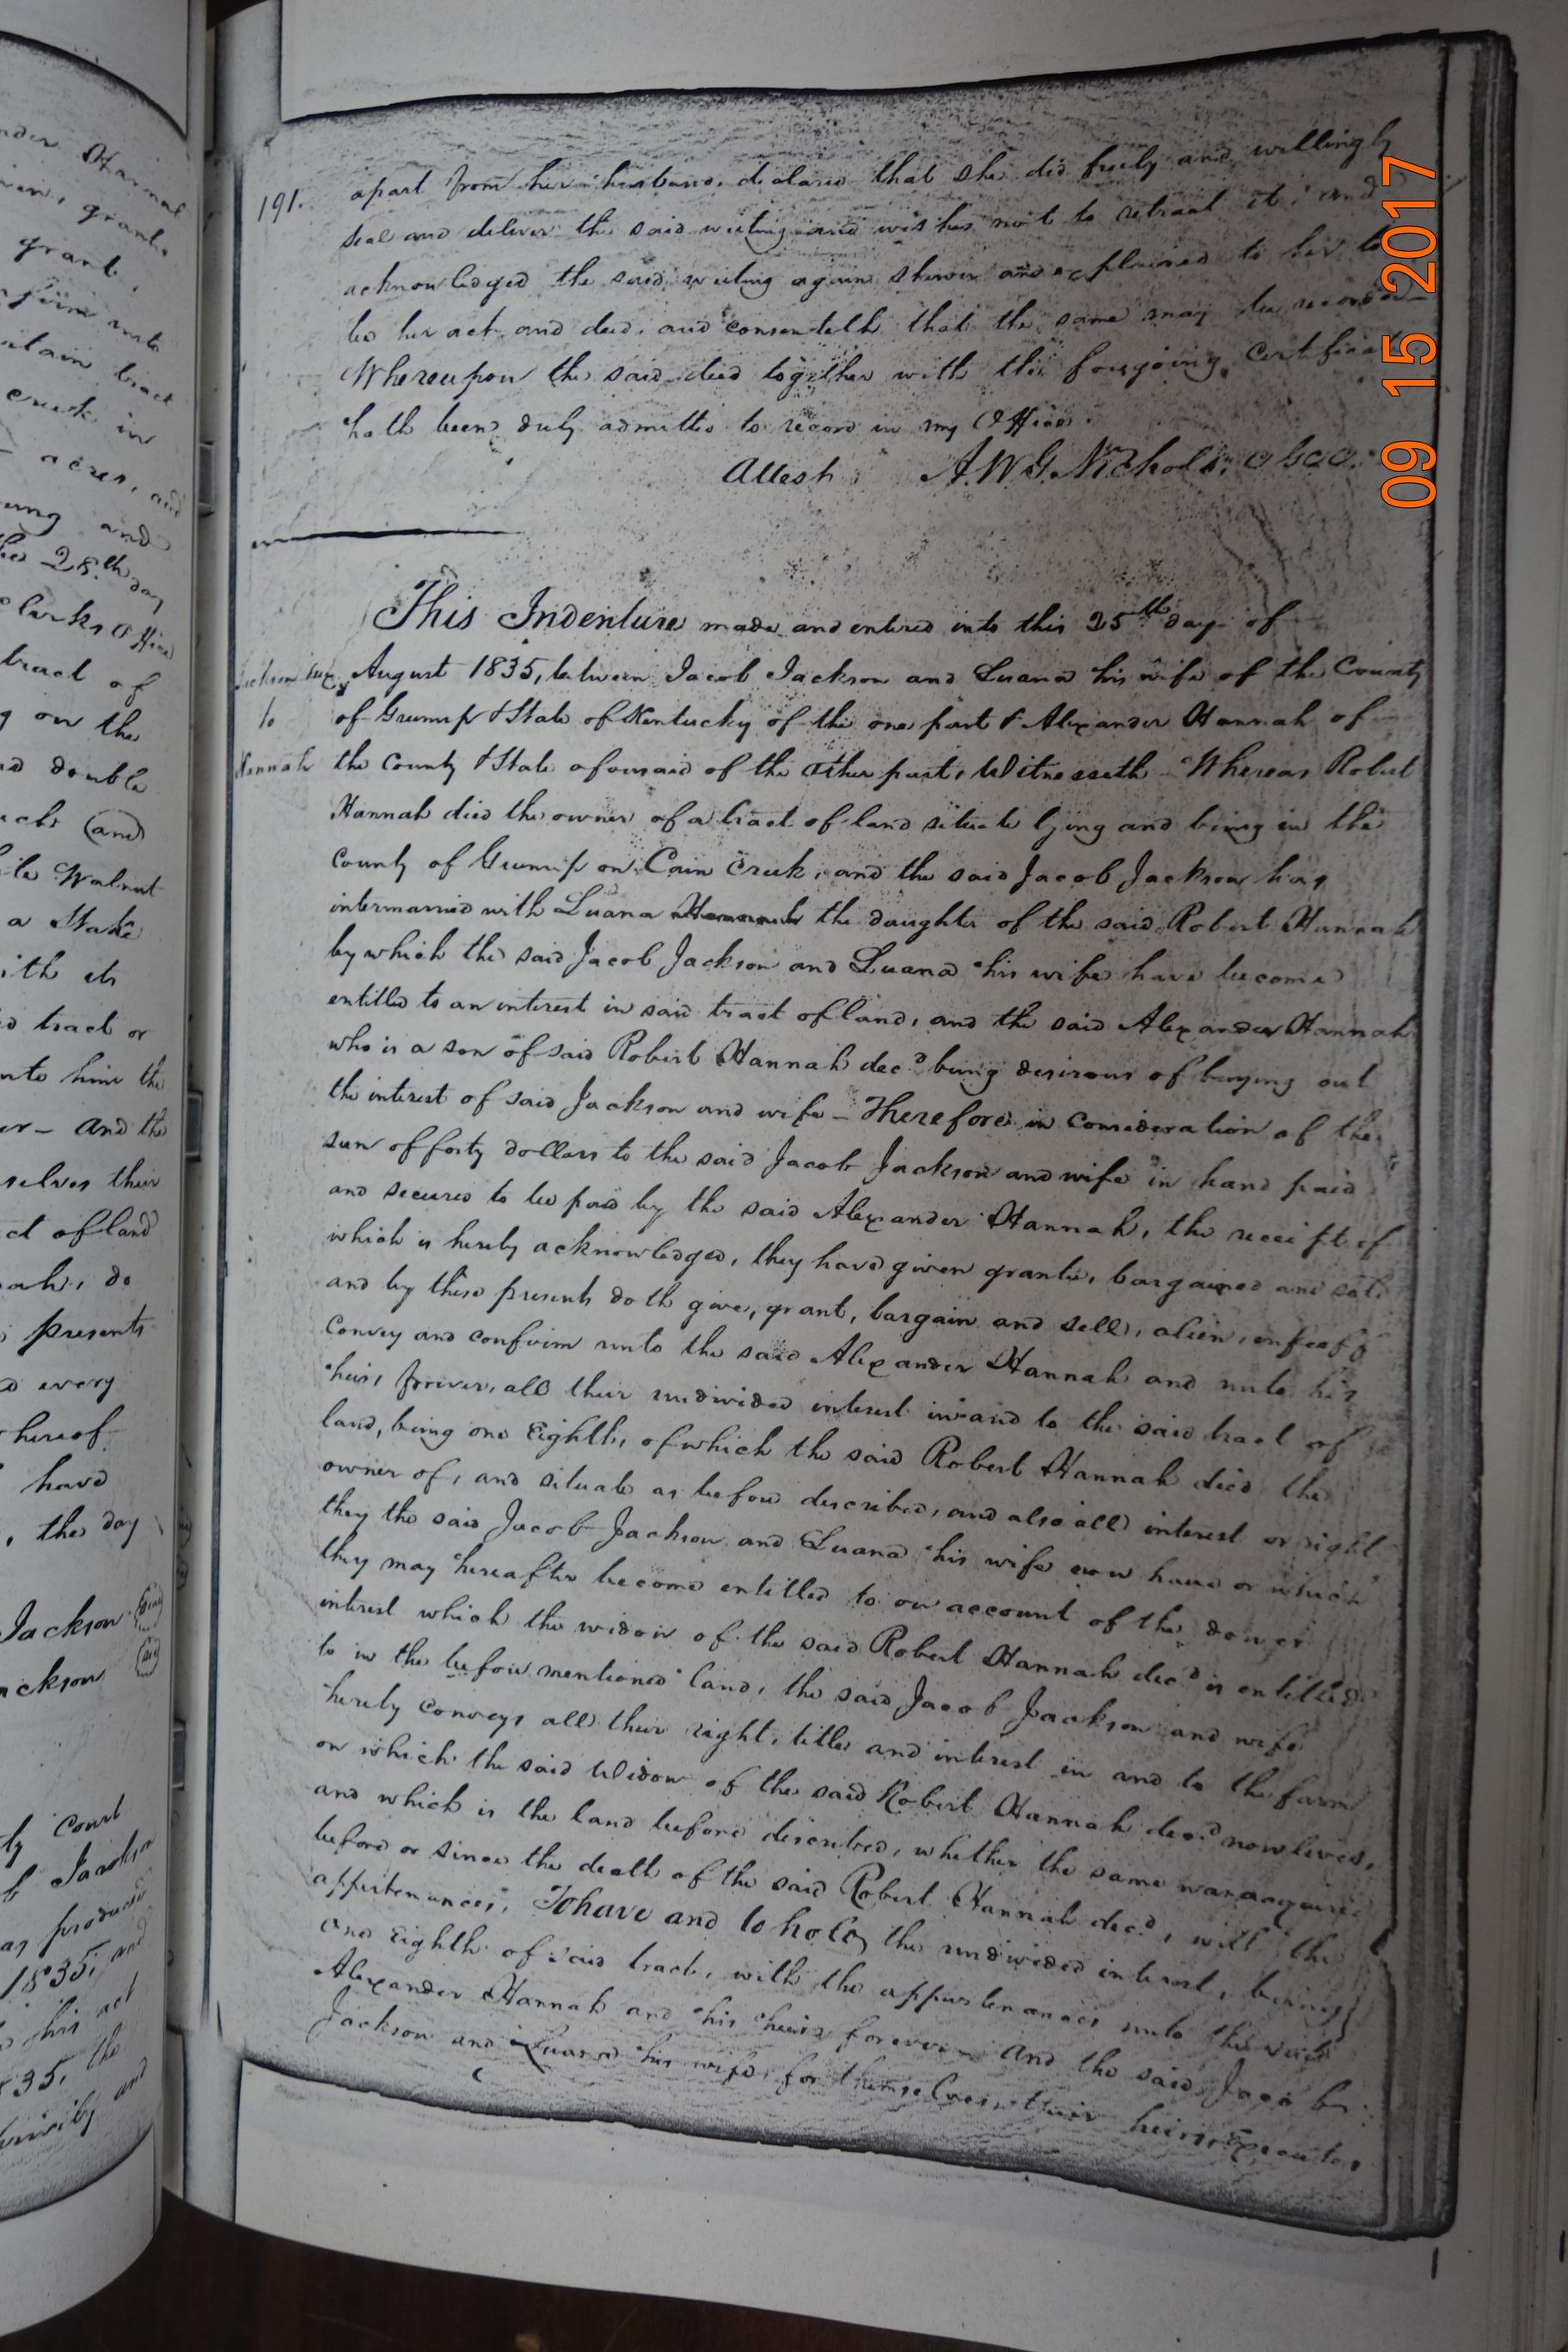 191.
apart from her husband, declared that she did freely and willingly
seal and deliver the said writing and wishes not to retract it, and
acknowledged the said writing again shewn and explained to her to
be her act and deed, and consenteth that the same may be recorded
Whereupon the said deed together with this foregoing Certificate
hath been duly admitted to record in my Office.
Attest A. W. G. Nichols,
This Indenture made and entered into this 25th day of
Jackson &ux August 1835, between Jacob Jackson and Luana his wife of the County
to of Greenup & State of Kentucky of the one part & Alexander Hannah of
Hannah the County & State aforesaid of the other part, Witnesseth – Whereas Robert
Hannah died the owner of a tract of land situate lying and being in the
County of Greenup on Cain Creek, and the said Jacob Jackson has
intermarried with Luana Hannah the daughter of the said Robert Hannah
by which the said Jacob Jackson and Luana his wife have become
entitled to an interest in said tract of land, and the said Alexander Hannah
who is a son of said Robert Hannah decd being desirous of buying out
the interest of said Jackson and wife – Therefore in consideration of the
sum of forty dollars to the said Jacob Jackson and wife in hand paid
and secured to be paid by the said Alexander Hannah, the receipt of
which is hereby acknowledged, they have given granted, bargained and sold
and by these presents doth give, grant, bargain and sell, alien, enfeoff
convey and confirm unto the said Alexander Hannah and unto his
heirs forever, all their undivided interest in and to the said tract of
land, being one Eighth, of which the said Robert Hannah died the
owner of, and situate as before described, and also all interest or right
they the said Jacob Jackson and Luana his wife now have or which
they may hereafter become entitled to on account of the dower
interest which the widow of the said Robert Hannah decd is entitled
to in the before mentioned land, the said Jacob Jackson and wife
hereby conveys all their right, title and interest in and to the farm
on which the said Widow of the said Robert Hannah decd now lives,
and which is the land before described, whether the same was acquired
before or since the death of the said Robert Hannah decd, with the
appurtenances, To have and to hold the undivided interest, being
one Eighth of said tract, with the appurtenances unto the said
Alexander Hannah and his heirs forever – And the said Jacob
Jackson and Luana his wife, for themselves, their heirs, Executors
09 15 2017